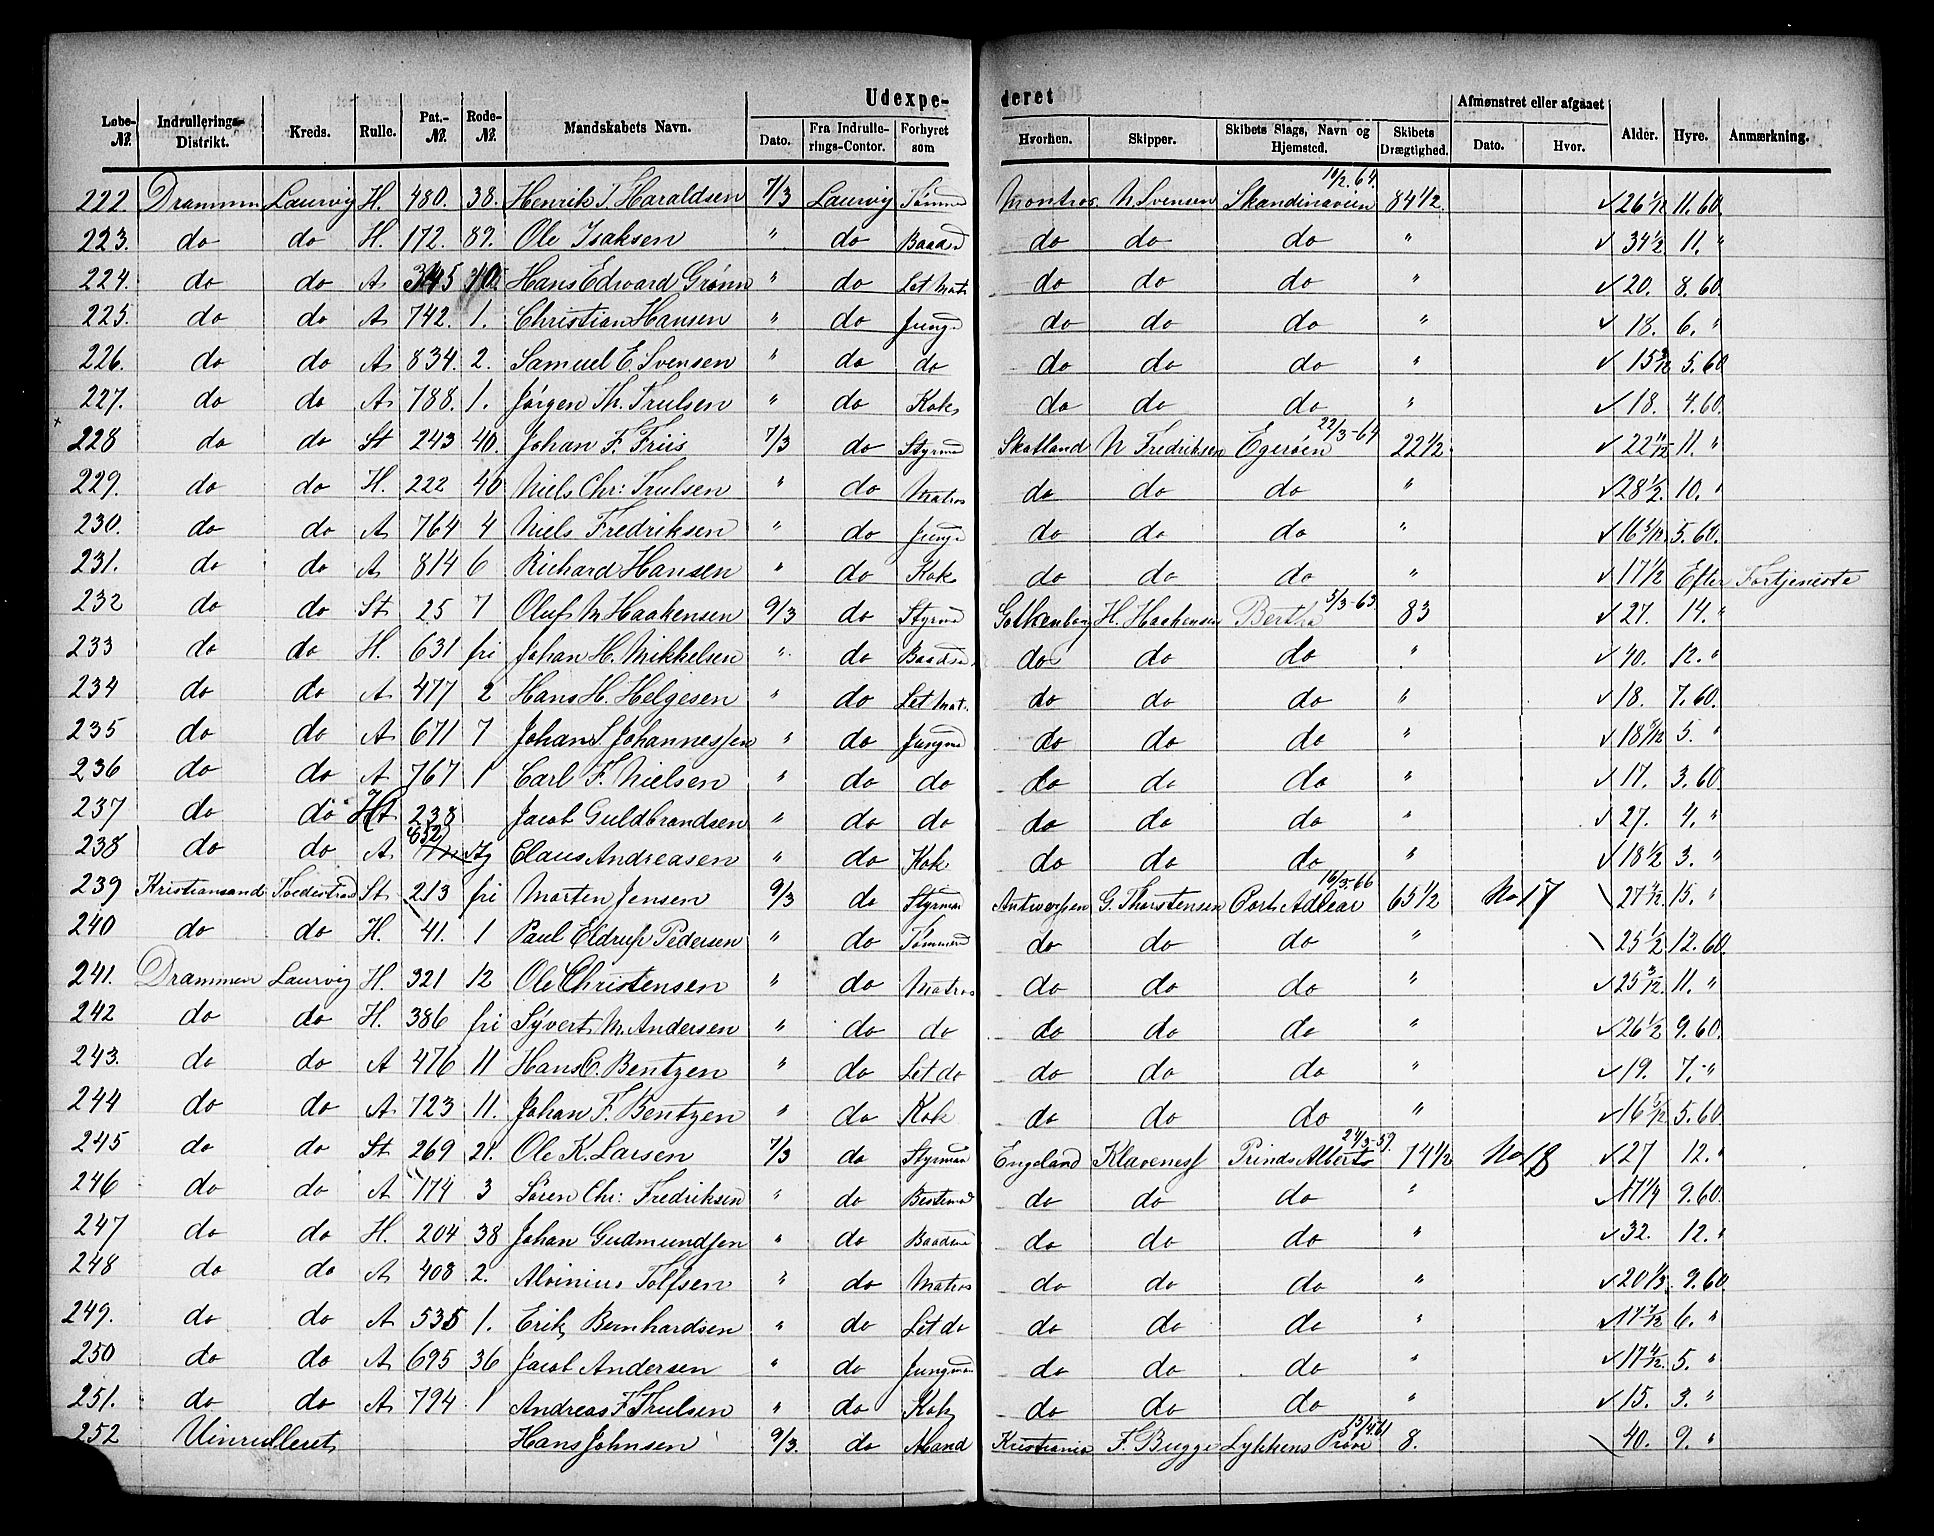 Udexpe- deret
Løbe-№. Indrullerings-Distrikt. Kreds. Rulle. Pat.-№. Rode-№. Mandskabets Navn. Dato. Fra Indrullerings-Contor. Forhyret som Hvorhen. Skipper. Skibets Slags, Navn og Hjemsted. Skibets Drægtighed. Afmønstret eller afgaaet Dato. Hvor. Alder. Hyre. Anmærkning.
222. Drammen Laurvig H. 480. 38. Henrik J. Haraldsen 7/3 Laurvig Tømmd Montros N Svensen Skandinavien 84 1/2. ✓ 11.60
223. do do H. 172. 89. Ole Isaksen " do Baadsd do do do " ✓ 34 1/2 11. "
224. do do A 345 Hans Edward Grønn " do Let Mat. do do do " ✓ 20. 8.60
225. do do A 742. 1. Christian Hansen " do Jungd do do do " ✓ 18. 6. "
226. do do A 834. 2. Samuel E. Svensen " do do do do do " ✓ 5.60
227. do do A 788. 1. Jørgen Th. Trulsen " do Kok do do do " ✓ 18. 4.60.
228 do do St 243 40. Johan F. Friis 7/3 do Styrmd Skotland N Fredriksen Egerøen 22/3-64 22 1/2. ✓ 22 11/12 11. "
229. do do H. 222 40 Niels Chr: Trulsen " do Matros do do do " ✓ 28 1/2. 10. "
230. do do A 764 4 Niels Fredriksen " do Jungd do do do " ✓ 5.60.
231. do do A 814 6 Richard Hansen " do Kok do do do " ✓ 17 1/2 Efter Fortjeniste
232 do do St 25 7 Oluf M Haakensen 9/3 do Styrmd Gothenborg H. Haakensen Bertha 83 ✓ 27. 14. "
233 do do H. 631 fri Johan H. Mikkelsen " do Baadsd do do do " ✓ 40. 12. "
234 do do A 477 2 Hans H. Helgesen " do Let Mat. do do do " ✓ 18. 7.60.
235 do do A 671 7 Johan S Johannessen " do Jungmd do do do " ✓ 5. "
236 do do A 767 1 Carl F. Nielsen " do do do do do " ✓ 17. 3.60
237 do do 238 Jacob Guldbrandsen " do do do do do " ✓ 27. 4. "
238 do do A (652) Claus Andreasen " do Kok do do do " ✓ 18 1/2 3. "
239 Kristiansand Tvedestrand St 213 fri Morten Jensen 9/3 do Styrman Antwerpen G. Thorstensen Cort Adlear 16/3-66 65 1/2 No 17 15. "
240 do do H. 41. 1 Paul Eldrup Pedersen " do Tømmerd do do do " 25 1/2 12.60.
241. Drammen Laurvig H. 321 12 Ole Christensen " do Matros do do do " ✓ 25 3/12. 11. "
242 do do H. 386 fri Syvert M. Andersen " do do do do do " ✓ 26 1/2 9.60.
243. do do A 476 11 Hans C. Bentzen " do Let do do do do " ✓ 19. 7. "
244 do do A 723 11. Johan F. Bentzen " do Kok do do do " ✓ 16 5/12 5.60
245 do do St 269 21. Ole K. Larsen 7/3 do Styrman Engeland Klaveness Prinds Alberts 74 1/2 No 18 ✓ 27 12. "
246 do do A 174 3 Søren Chr: Fredriksen " do Bestemd do do do " ✓ 9.60.
247 do do H. 204 38 Johan Gudmundsen " do Baadsmd do do do " ✓ 32. 12. "
248 do do A 408 2. Aloinius Tolfsen " do Matros do do do " ✓ 20 1/3. 9.60.
249. do do A 535 1. Erik Bernhardsen " do Let do do do do " ✓ 6. "
250 do do A 695 36 Jacob Andersen " do Jungman do do do " ✓ 17 4/12. 5. "
251. do do A 794 1 Andreas F. Trulsen " do Kok do do do " ✓ 15. 3. "
252 Uinrulleret Hans Johnsen 9/3. do Mand Kristiania F. Bugge Lykkens Prøve 8. 40. 9. "